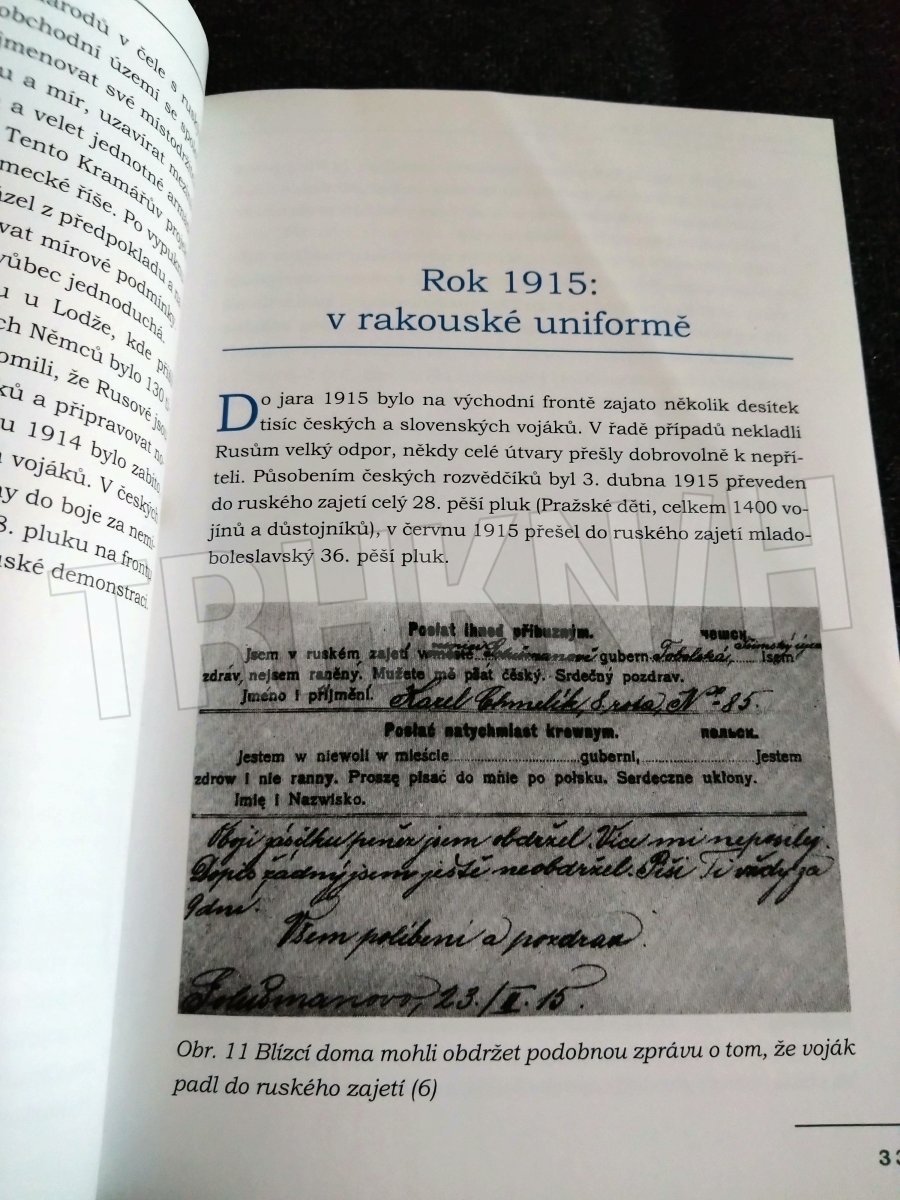 národů v čele s
obchodní území se
jmenovat své místodrž
u a mír, uzavírat mezi
a velet jednotné armá
Tento Kramářův proje
mecké říše. Po vypuknu
ázel z předpokladu
vat mírové podmínky
vůbec jednoduchá.
u u Lodže, kde při
ch Němců bylo 130
omili, že Rusové jsou
ků a připravovat
u 1914 bylo zabito
vojáků. V českých
ny do boje za
8. pluku na frontu
ské demonstraci.
Rok 1915:
v rakouské uniformě
Do jara 1915 bylo na východní frontě zajato několik desítek
tisíc českých a slovenských vojáků. V řadě případů nekladli
Rusům velký odpor, někdy celé útvary přešly dobrovolně k nepří-
teli. Působením českých rozvědčíků byl 3. dubna 1915 převeden
do ruského zajetí celý 28. pěší pluk (Pražské děti, celkem 1400 vo-
jínů a důstojníků), v červnu 1915 přešel do ruského zajetí mlado-
boleslavský 36. pěší pluk.
TRHKNIH
Poslat ihned příbuzným. чешск.
Jsem v ruském zajetí v městě gubern. Tobolská, Jsem
zdráv, nejsem raněný. Mužete mě psát český. Srdečný pozdrav.
Jmeno i příjmění. Karel Chmelík, 8 rota, No 85.
Posłać natychmiast krewnym. польск.
Jestem w niewoli w mieście guberni, Jestem
zdrow i nie ranny. Proszę pisać do mnie po polsku. Serdeczne ukłony.
Imię i Nazwisko.
Oboji zásilku peněz jsem obdržel. Více mi neposílej.
Dopis žádný jsem ještě neobdržel. Píši Ti vždy za
9 dne.
Všem políbení a pozdrav.
23./II. 15.
Obr. 11 Blízcí doma mohli obdržet podobnou zprávu o tom, že voják
padl do ruského zajetí (6)
33